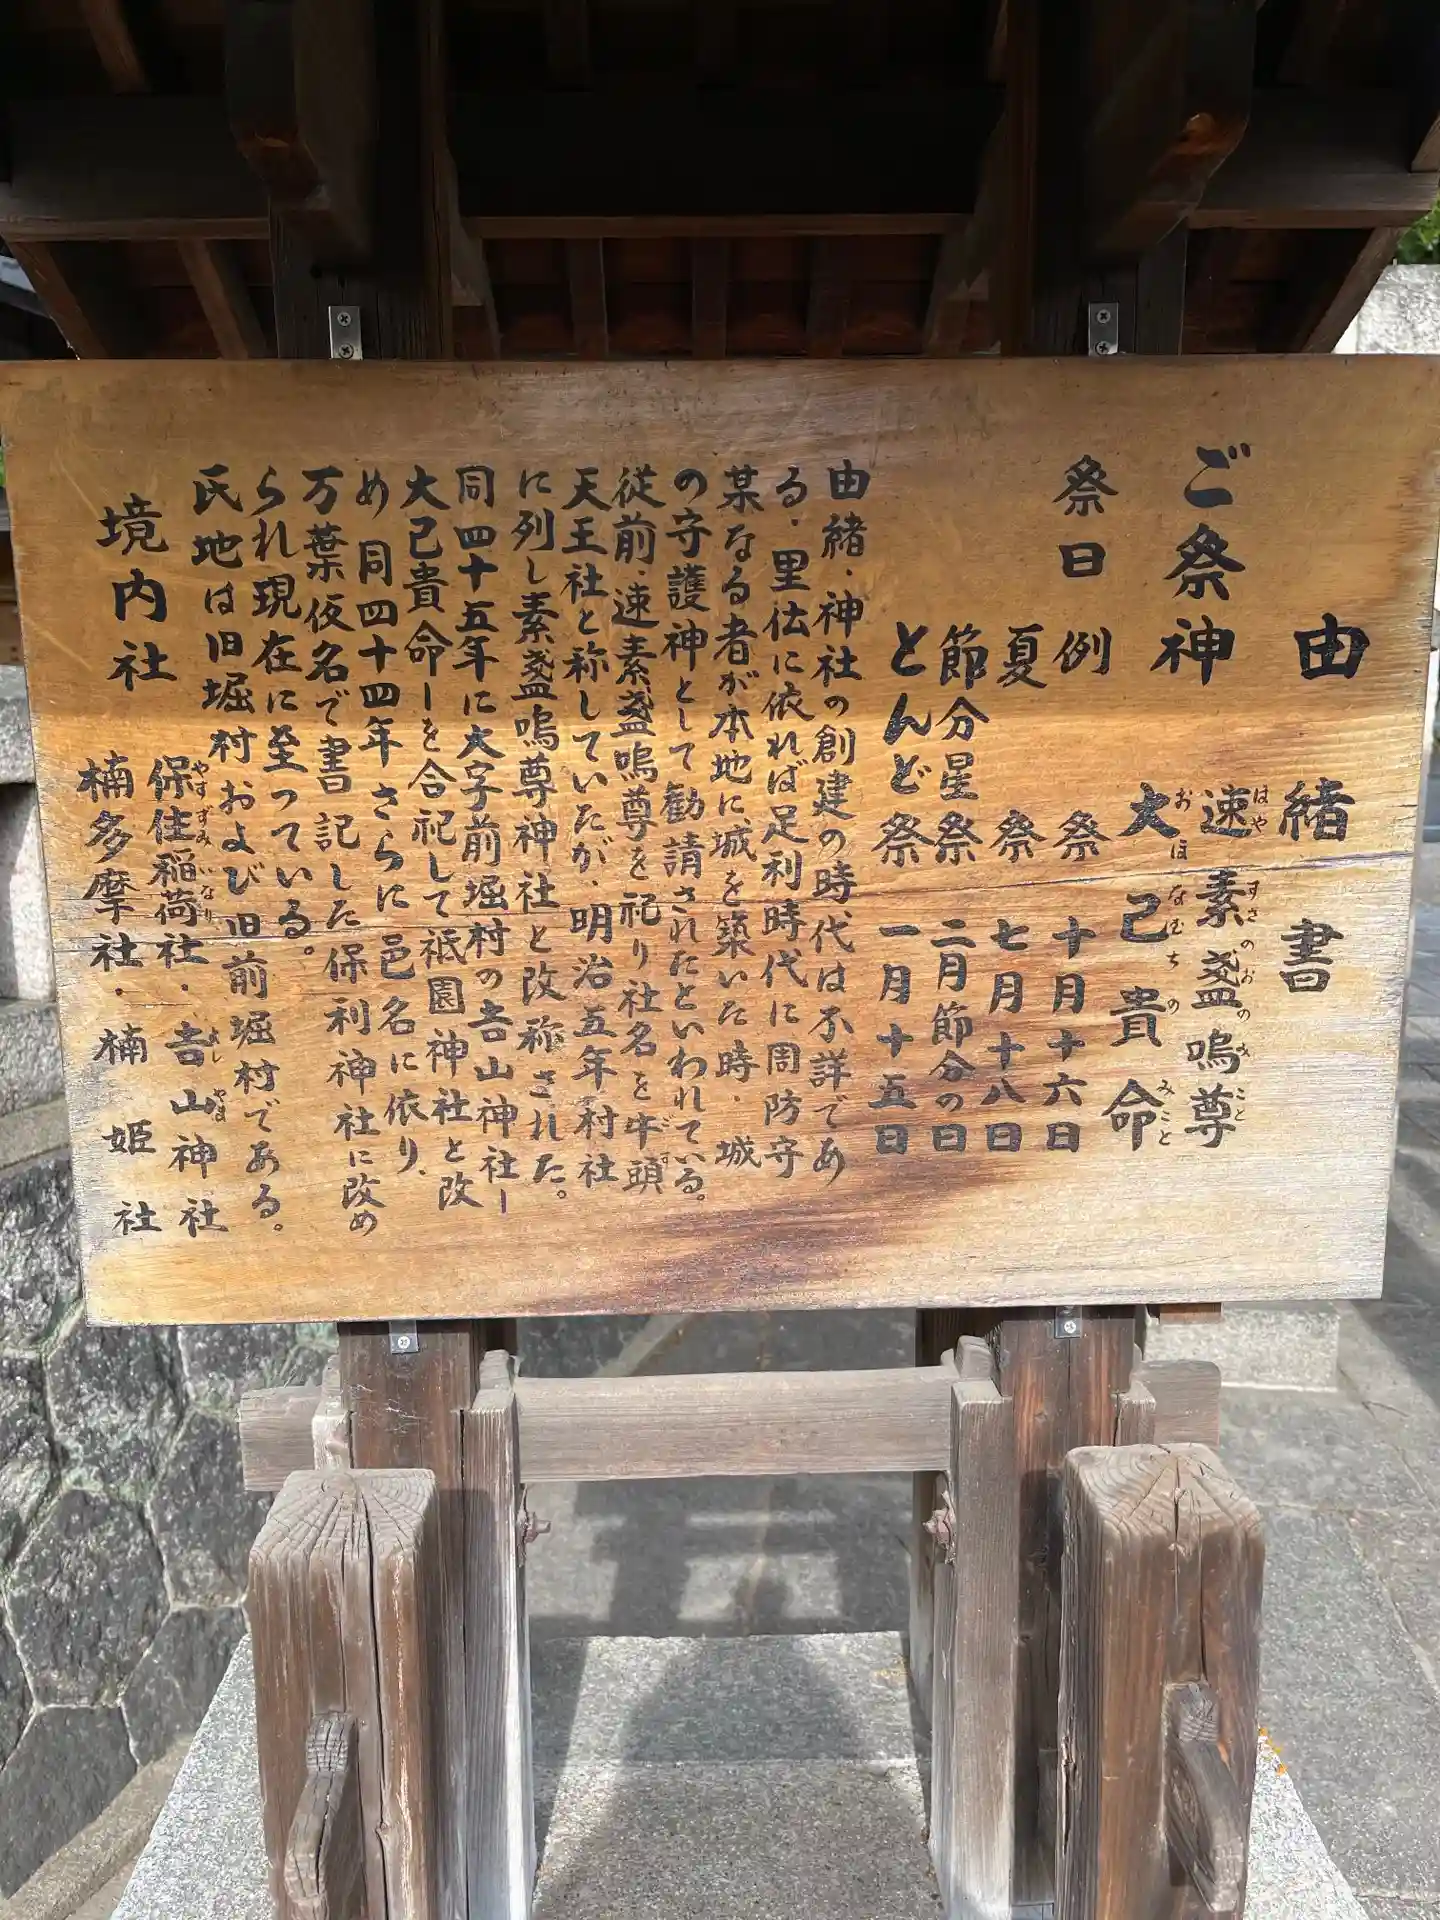 由緒書
ご祭神
速素盞嗚尊
はや すさのおのみこと
大己貴命
おほなむちのみこと
祭日
例祭 十月十六日
夏祭 七月十八日
節分星祭 二月節分の日
とんど祭 一月十五日
由緒、神社の創建の時代は不詳であ
る、里伝に依れば足利時代に周防守
某なる者が本地に城を築いた時、城
の守護神として勧請されたといわれている。
従前、速素盞嗚尊を祀り社名を牛頭
ごず
天王社と称していたが、明治五年村社
に列し素盞嗚尊神社と改称された。
同四十五年に大字前堀村の吉山神社ー
大己貴命ーを合祀して祇園神社と改
め同四十四年さらに邑名に依り、
万葉仮名で書記した保利神社に改め
られ現在に至っている。
氏地は旧堀村および旧前堀村である。
境内社
保住稲荷社、吉山神社
やすずみいなり よしやま
楠多摩社、楠姫社